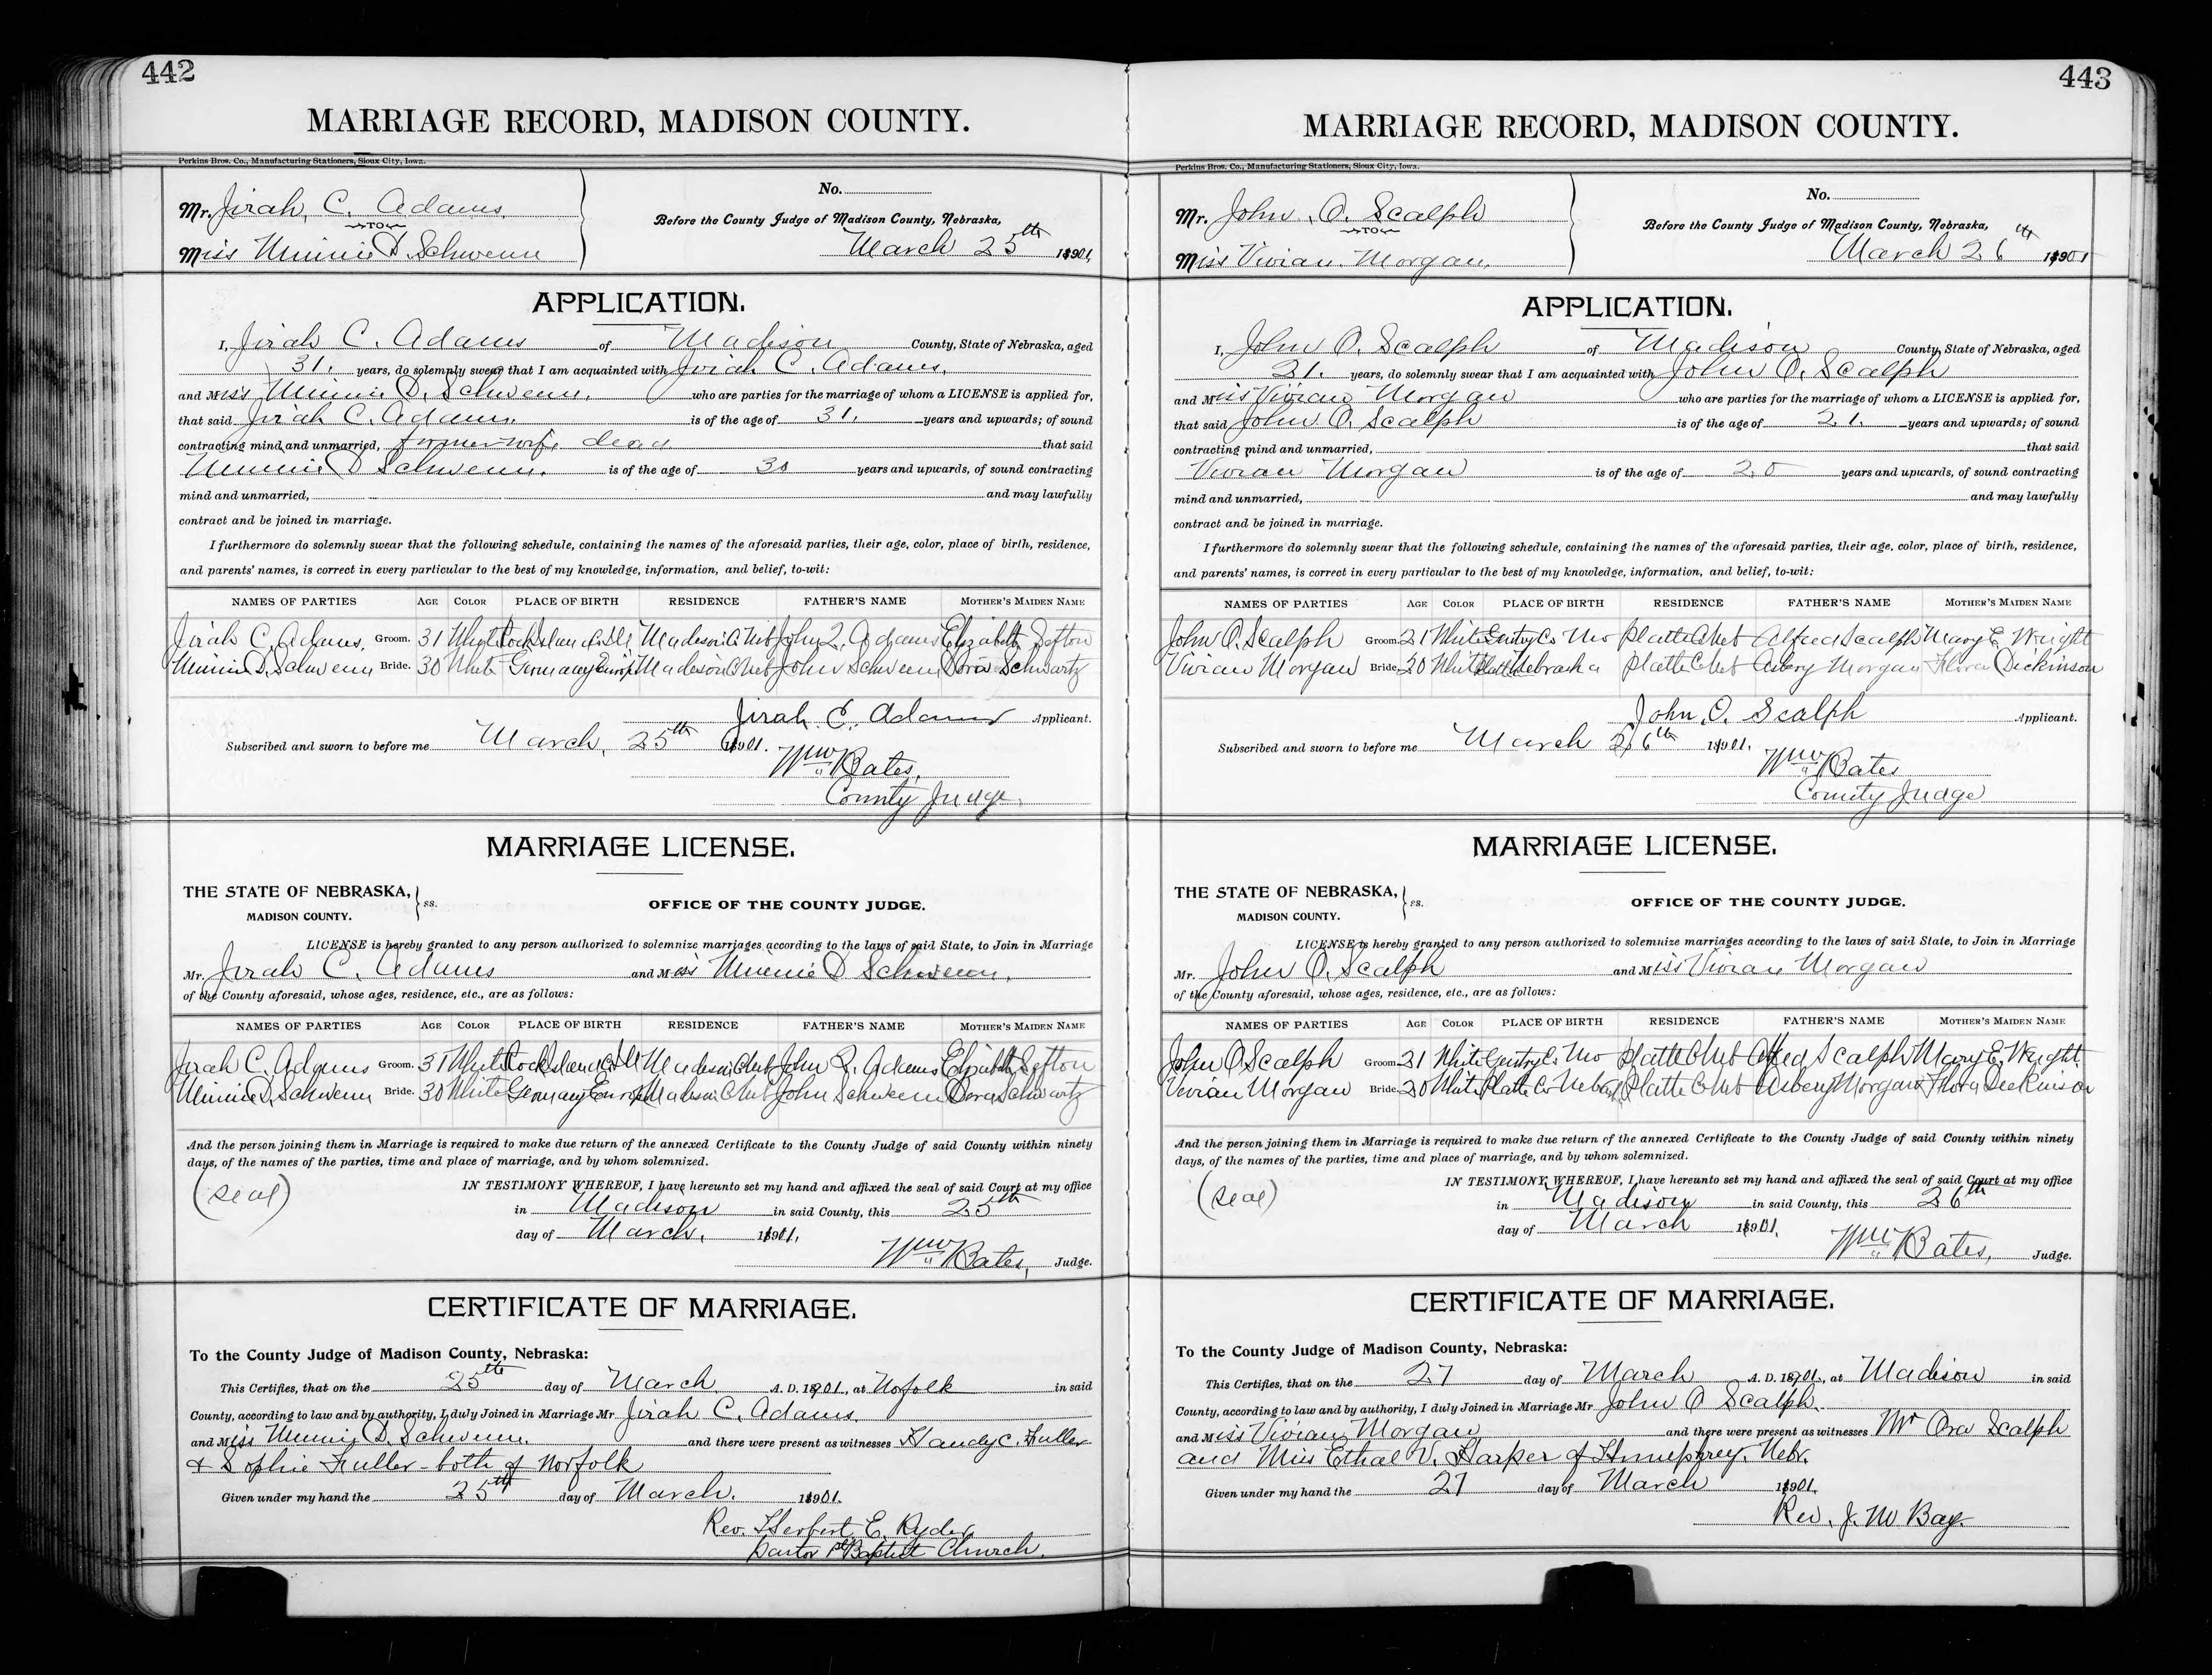 442
MARRIAGE RECORD, MADISON COUNTY.
Perkins Bros. Co., Manufacturing Stationers, Sioux City, Iowa.
Mr. Jirah C. Adams
TO
Miss Minnie D. Schwenn
No.
Before the County Judge of Madison County, Nebraska,
March 25th 1901,
APPLICATION.
I, Jirah C. Adams of Madison County, State of Nebraska, aged
31. years, do solemnly swear that I am acquainted with Jirah C. Adams.
and Miss Minnie D. Schwenn. who are parties for the marriage of whom a LICENSE is applied for,
that said Jirah C. Adams. is of the age of 31. years and upwards; of sound
contracting mind and unmarried, former wife dead that said
Minnie D Schwenn. is of the age of 30 years and upwards, of sound contracting
mind and unmarried, and may lawfully
contract and be joined in marriage.
I furthermore do solemnly swear that the following schedule, containing the names of the aforesaid parties, their age, color, place of birth, residence,
and parents' names, is correct in every particular to the best of my knowledge, information, and belief, to-wit:
NAMES OF PARTIES AGE COLOR PLACE OF BIRTH RESIDENCE FATHER'S NAME MOTHER'S MAIDEN NAME
Jirah C. Adams. Groom. 31 White Rock Island Co Ill Madison Co Neb John Q. Adams Elizabeth Sefton
Minnie D. Schwenn Bride. 30 White Germany Europe Madison Co Neb John Schwenn Dora Schwartz
Jirah C. Adams Applicant.
Subscribed and sworn to before me March, 25th 1901.
Wm Bates,
County Judge.
MARRIAGE LICENSE.
THE STATE OF NEBRASKA, ss.
MADISON COUNTY.
OFFICE OF THE COUNTY JUDGE.
LICENSE is hereby granted to any person authorized to solemnize marriages according to the laws of said State, to Join in Marriage
Mr. Jirah C. Adams and Miss Minnie D Schwenn.
of the County aforesaid, whose ages, residence, etc., are as follows:
NAMES OF PARTIES AGE COLOR PLACE OF BIRTH RESIDENCE FATHER'S NAME MOTHER'S MAIDEN NAME
Jirah C. Adams Groom. 31 White Rock Island Co Ill Madison Co Neb John Q. Adams Elizabeth Sefton
Minnie D. Schwenn Bride. 30 White Germany Europe Madison Co Neb John Schwenn Dora Schwartz
And the person joining them in Marriage is required to make due return of the annexed Certificate to the County Judge of said County within ninety
days, of the names of the parties, time and place of marriage, and by whom solemnized.
(seal)
IN TESTIMONY WHEREOF, I have hereunto set my hand and affixed the seal of said Court at my office
in Madison in said County, this 25th
day of March. 1901.
Wm Bates, Judge.
CERTIFICATE OF MARRIAGE.
To the County Judge of Madison County, Nebraska:
This Certifies, that on the 25th day of March A. D. 1901, at Norfolk in said
County, according to law and by authority, I duly Joined in Marriage Mr Jirah C. Adams.
and Miss Minnie D. Schwenn. and there were present as witnesses Handy C. Fuller
& Sophie Fuller - both of Norfolk
Given under my hand the 25th day of March. 1901.
Rev. Herbert E. Ryder
Pastor 1st Baptist Church.
443
MARRIAGE RECORD, MADISON COUNTY.
Perkins Bros. Co., Manufacturing Stationers, Sioux City, Iowa.
Mr. John O. Scalph
TO
Miss Vivian Morgan.
No.
Before the County Judge of Madison County, Nebraska,
March 26th 1901
APPLICATION.
I, John O. Scalph of Madison County, State of Nebraska, aged
21. years, do solemnly swear that I am acquainted with John O. Scalph
and Miss Vivian Morgan who are parties for the marriage of whom a LICENSE is applied for,
that said John O. Scalph is of the age of 21. years and upwards; of sound
contracting mind and unmarried, that said
Vivian Morgan is of the age of 20 years and upwards, of sound contracting
mind and unmarried, and may lawfully
contract and be joined in marriage.
I furthermore do solemnly swear that the following schedule, containing the names of the aforesaid parties, their age, color, place of birth, residence,
and parents' names, is correct in every particular to the best of my knowledge, information, and belief, to-wit:
NAMES OF PARTIES AGE COLOR PLACE OF BIRTH RESIDENCE FATHER'S NAME MOTHER'S MAIDEN NAME
John O. Scalph Groom. 21 White Gentry Co Mo Platte Co Neb Alfred Scalph Mary E. Wright
Vivian Morgan Bride. 20 White Platte Nebraska Platte Co Neb Asbery Morgan Flora Dickinson
John O. Scalph Applicant.
Subscribed and sworn to before me March 26th 1901.
Wm Bates
County Judge
MARRIAGE LICENSE.
THE STATE OF NEBRASKA, ss.
MADISON COUNTY.
OFFICE OF THE COUNTY JUDGE.
LICENSE is hereby granted to any person authorized to solemnize marriages according to the laws of said State, to Join in Marriage
Mr. John O. Scalph and Miss Vivian Morgan
of the County aforesaid, whose ages, residence, etc., are as follows:
NAMES OF PARTIES AGE COLOR PLACE OF BIRTH RESIDENCE FATHER'S NAME MOTHER'S MAIDEN NAME
John O Scalph Groom. 21 White Gentry Co Mo Platte Co Neb Alfred Scalph Mary E. Wright.
Vivian Morgan Bride. 20 White Platte Co Nebas Platte Co Neb Asbery Morgan Flora Dickinson
And the person joining them in Marriage is required to make due return of the annexed Certificate to the County Judge of said County within ninety
days, of the names of the parties, time and place of marriage, and by whom solemnized.
(seal)
IN TESTIMONY WHEREOF, I have hereunto set my hand and affixed the seal of said Court at my office
in Madison in said County, this 26th
day of March 1901.
Wm Bates, Judge.
CERTIFICATE OF MARRIAGE.
To the County Judge of Madison County, Nebraska:
This Certifies, that on the 27 day of March A. D. 1901, at Madison in said
County, according to law and by authority, I duly Joined in Marriage Mr John O Scalph.
and Miss Vivian Morgan and there were present as witnesses Mr Ora Scalph
and Miss Ethal V. Harper of Humphrey. Nebr.
Given under my hand the 27 day of March 1901.
Rev. J. M Bay.